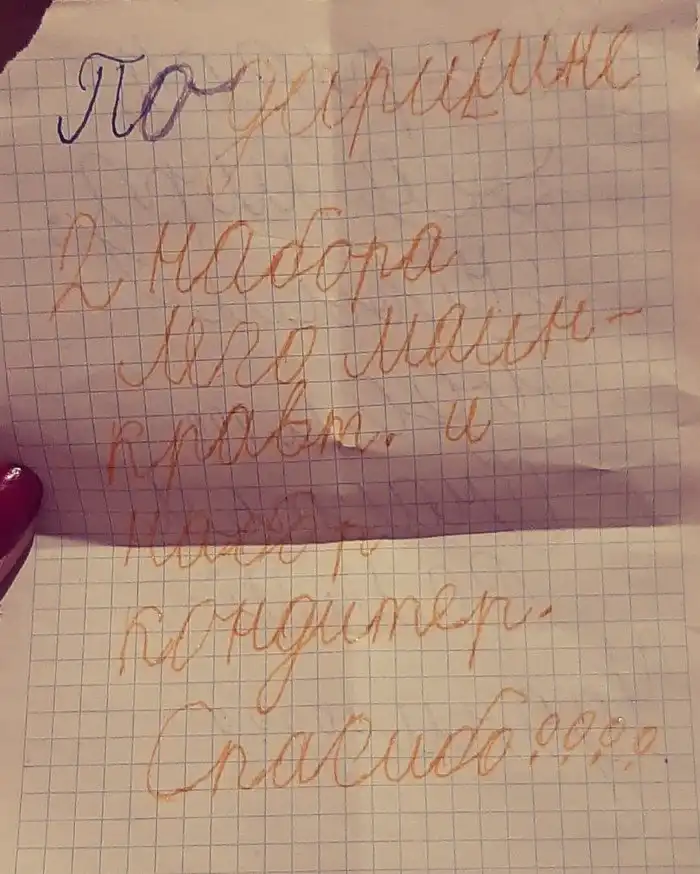 По
2 набора
лего маин-
кравт. и
набор
кондитер.
Спасибо!!!!